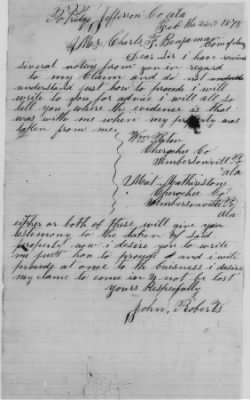 Jefferson Co Ala
Feb the 22d 1878
Mr Charles F. Benjamin
Dear Sir I have recived
several notices from you in regard
to my Claim and do not
understand just how to procede I will
write to you for advice I will all so
tell you where the evidence is that
was with me when my property was
taken from me.
Wm
Cherochee Co
Ala
Mat. Mathinstone
Cherochee Co
Ala
either or both of these will give you
testimony to the taken of said
property now I desire you to write
me just how to procede and I will
procede at once to the buisness I desire
my clame to come in & not be lost
Yours Respecfully
John, Roberts